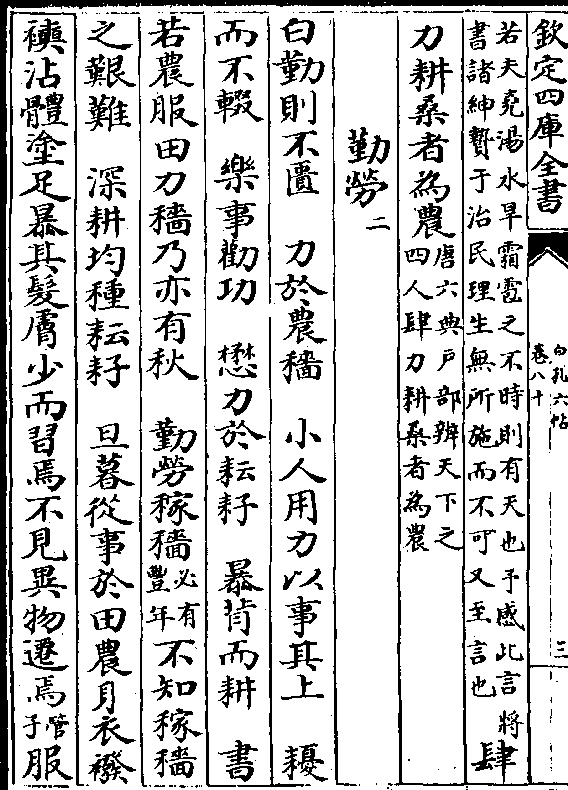 欽定四庫全書
白孔六帖
卷八十
三
若夫堯湯水旱霜雹之不時則有天也予感此言將
書諸紳贊于治民理生無所施而不可又至言也
肆
力耕桑者為農
唐六典戶部辨天下之
四人肆力耕桑者為農
勤勞二
白勤則不匱 力於農穡 小人用力以事其上 耰
而不輟 樂事勸功 懋力於耘耔 暴背而耕 書
若農服田力穡乃亦有秋 勤勞稼穡必有豐年不知稼穡
之艱難 深耕均種耘耔 旦暮從事於田農身衣襏
襫沾體塗足暴其髮膚少而習焉不見異物遷焉管子服